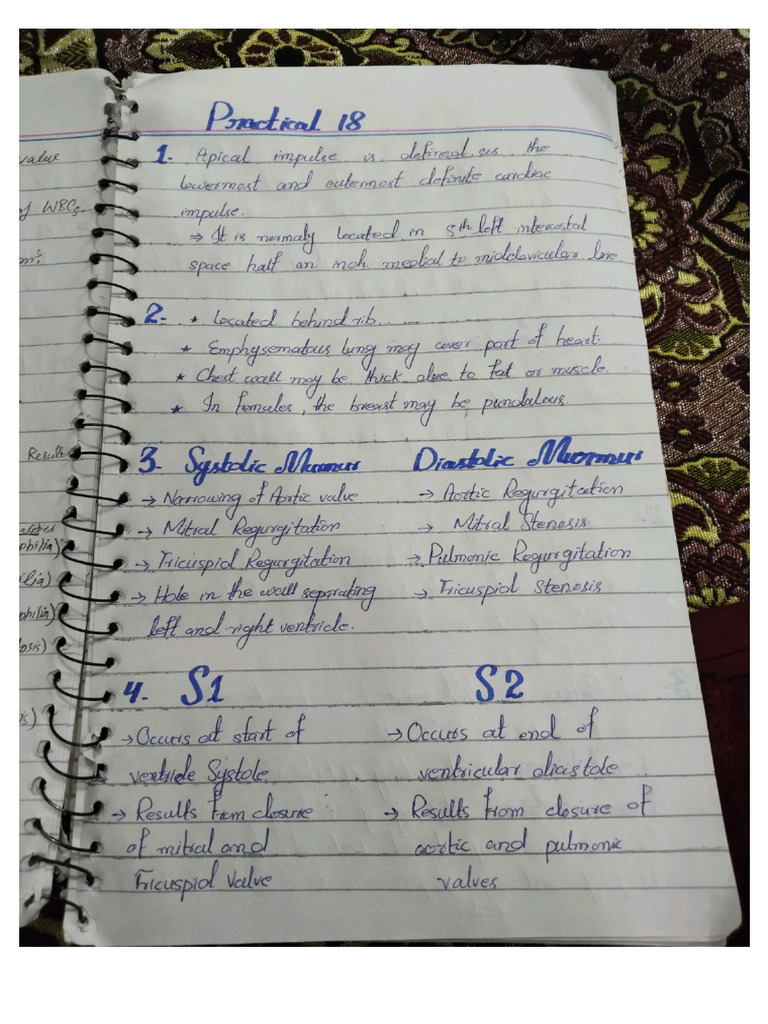 value
of WBCs
Result
philia)
ilia)
philia)
osis)
is)
Practical 18
1. Apical impulse is defined as the
lowermost and outermost definite cardiac
impulse.
⇒ It is normaly located in 5th left intercostal
space half an inch medial to midclavicular line
2. * Located behind rib.
* Emphysematous lung may cover part of heart.
* Chest wall may be thick due to fat or muscle.
* In females, the breast may be pundulous.
3. Systolic Murmur Diastolic Murmur
→ Narrowing of Aortic valve → Aortic Regurgitation
→ Mitral Regurgitation → Mitral Stenosis
→ Tricuspid Regurgitation → Pulmonic Regurgitation
→ Hole in the wall separating → Tricuspid Stenosis
left and right ventricle.
4. S1 S2
→ Occurs at start of → Occurs at end of
ventricle Systole ventricular diastole
→ Results from closure → Results from closure of
of mitral and aortic and pulmonic
Tricuspid Valve valves